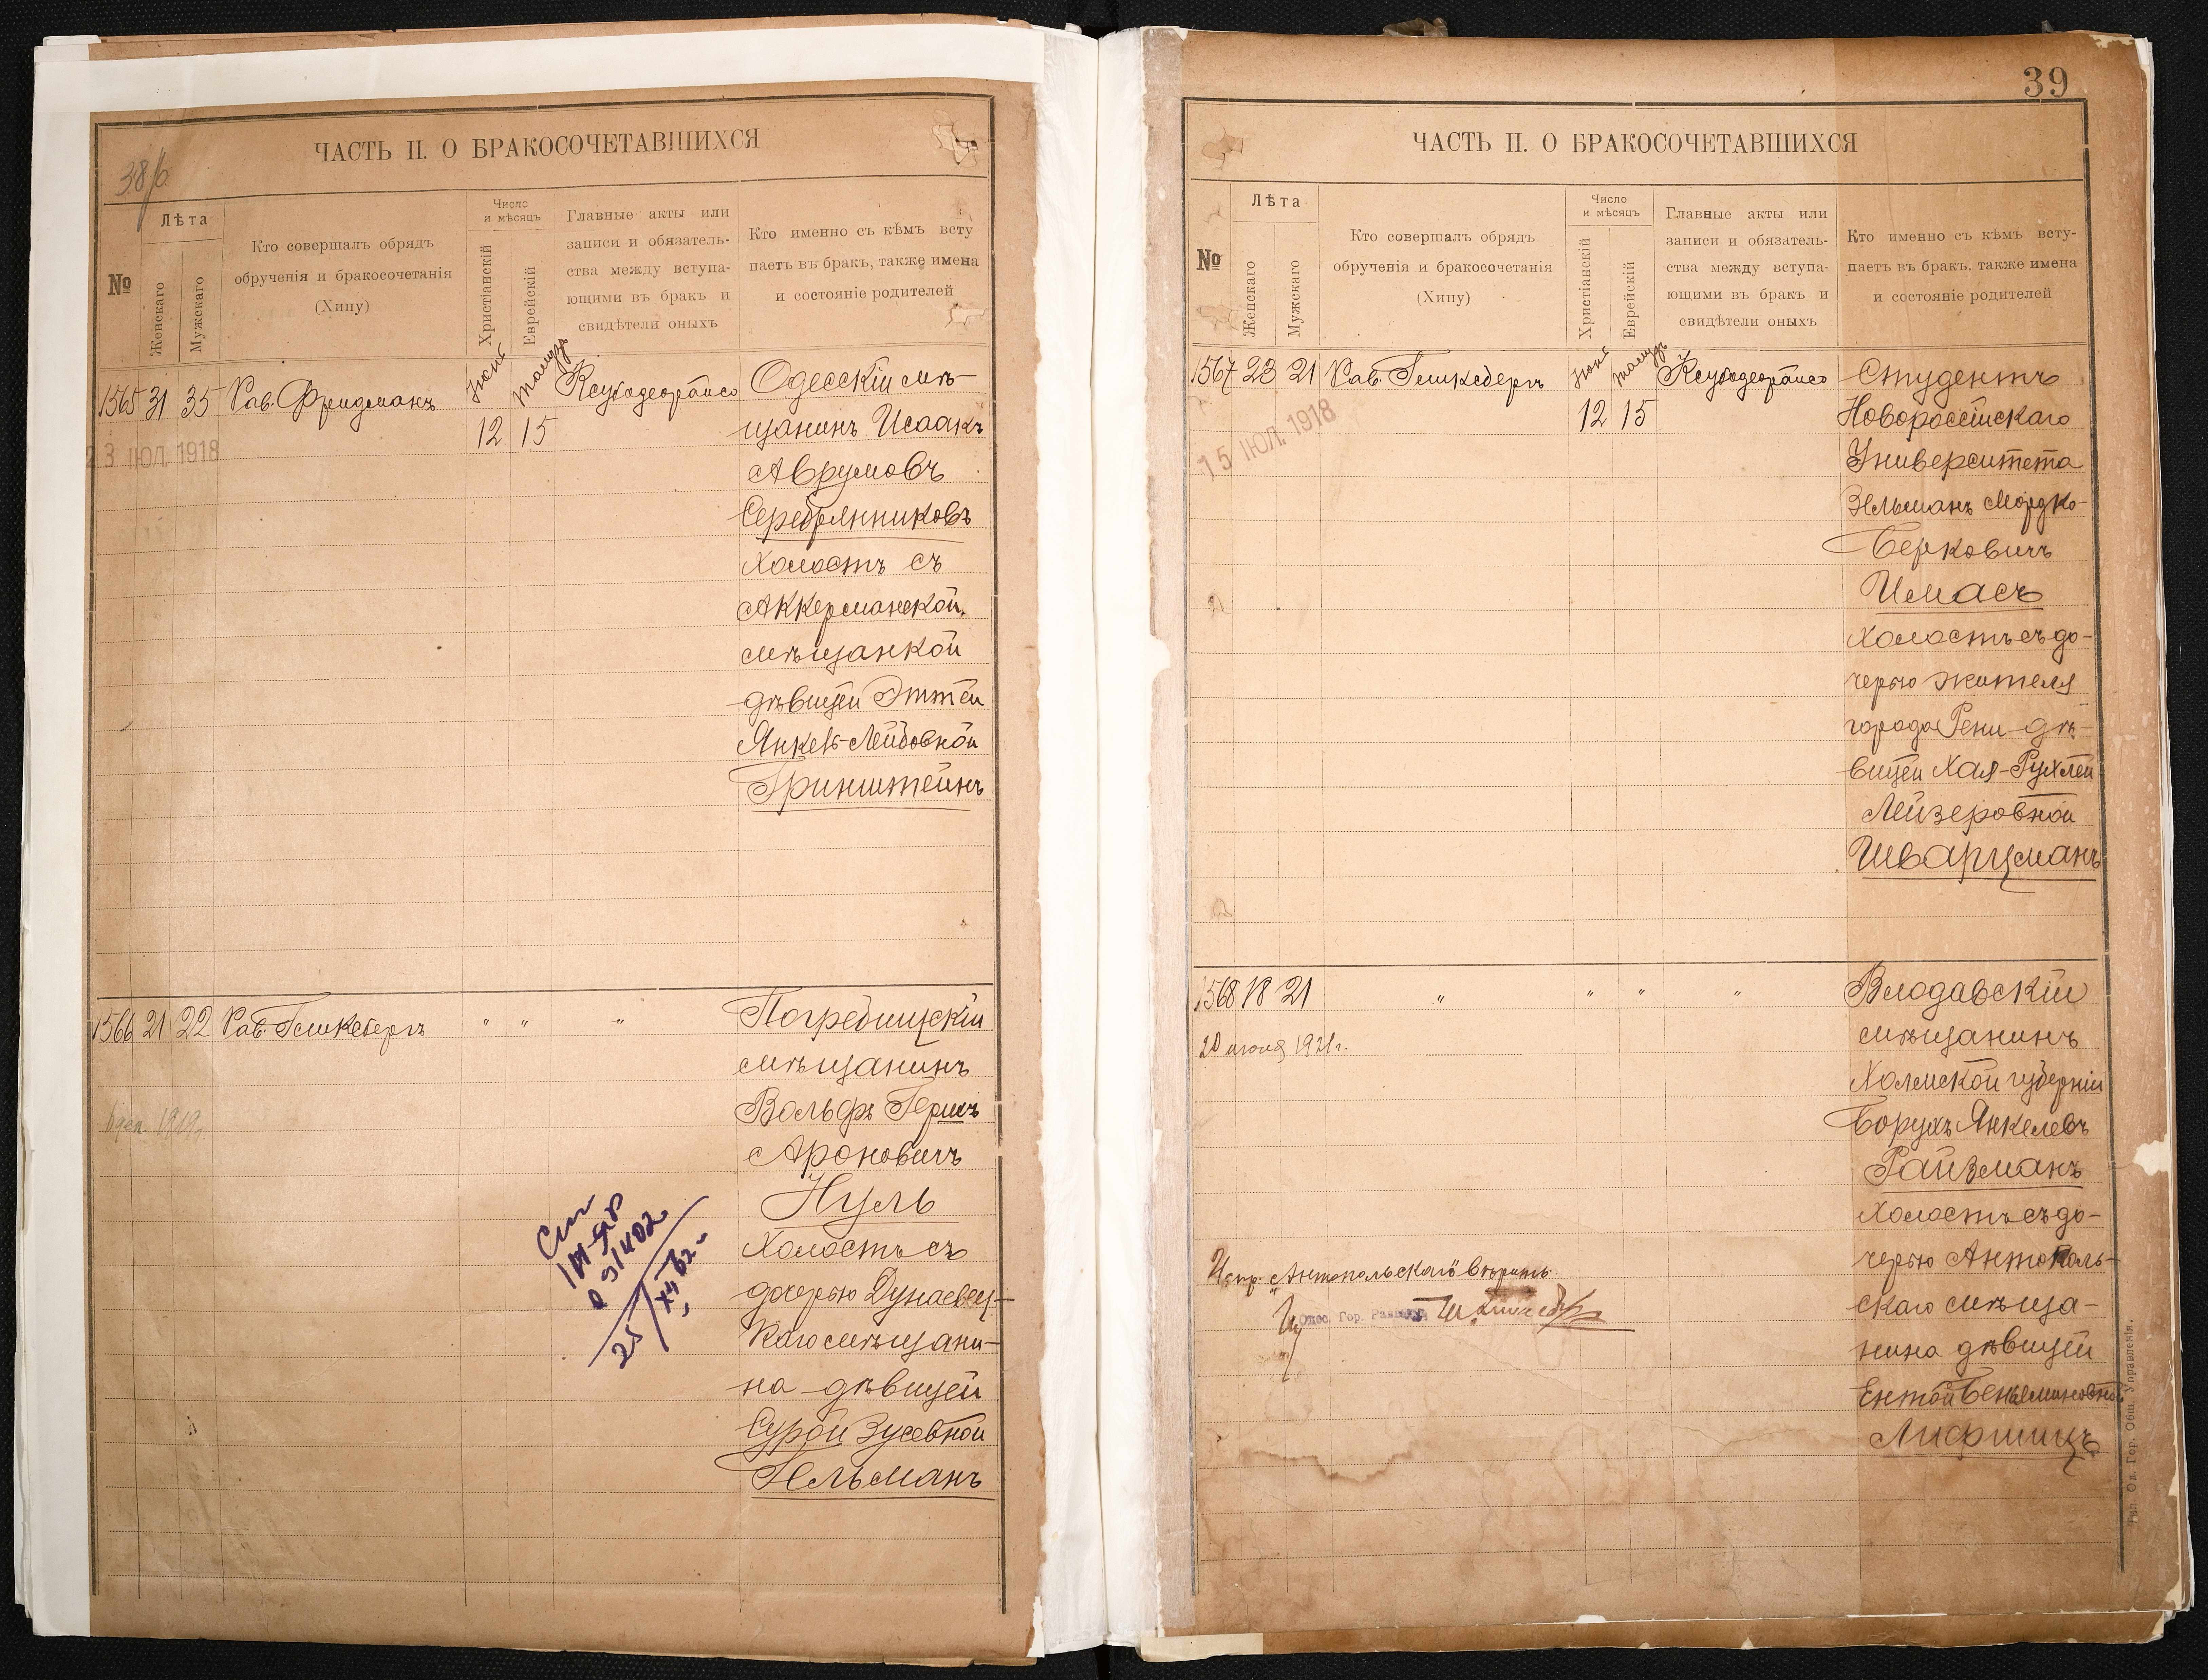 38/б
ЧАСТЬ II. О БРАКОСОЧЕТАВШИХСЯ
№
Лѣта
Женскаго
Мужскаго
Кто совершалъ обрядъ
обрученія и бракосочетанія
(Хипу)
Число
и мѣсяцъ
Христіанскій
Еврейскій
Главные акты или
записи и обязатель-
ства между вступа-
ющими въ бракъ и
свидѣтели оныхъ
Кто именно съ кѣмъ всту
паетъ въ бракъ, также имена
и состояніе родителей
1565 31 35 Рав. Фридманъ
Одесскій мѣ-
12 15 щанинъ Исаакъ
23 ІЮЛ. 1918
Аврумовъ
Серебрянниковъ
холостъ съ
Аккерманской
мѣщанкой
дѣвицей Эттей
Янкель-Лейбовной
Гринштейнъ
1566 21 22 Рав. Гликсбергъ " " " Погребищскій
мѣщанинъ
Вольфъ Гершъ
Ароновичъ
Нуль
холостъ съ
дочерью Дунаевец-
каго мѣщани-
на дѣвицей
Сурой Зусевной
Гельманъ
39
ЧАСТЬ II. О БРАКОСОЧЕТАВШИХСЯ
№
Лѣта
Женскаго
Мужскаго
Кто совершалъ обрядъ
обрученія и бракосочетанія
(Хипу)
Число
и мѣсяцъ
Христіанскій
Еврейскій
Главные акты или
записи и обязатель-
ства между вступа-
ющими въ бракъ и
свидѣтели оныхъ
Кто именно съ кѣмъ всту-
паетъ въ бракъ, также имена
и состояніе родителей
1567 23 21 Рав. Гликсбергъ
Студентъ
12 15 Новороссійскаго
15 ІЮЛ. 1918
Университета
Зельманъ Мордко-
Берковичъ
Имасъ
холостъ съ до-
черью жителя
города Рени дѣ-
вицей Хая-Рухлей
Лейзеровной
Шварцманъ
1568 18 21 " " " " Влодавскій
20 1921г.
мѣщанинъ
Холмской губерніи
Борухъ Янкелевъ
Райзманъ
холостъ съ до-
черью Антополь-
скаго мѣща-
нина дѣвицей
Ентой Беньяминовной
Лифшицъ
Испр. "Антопольскаго" вѣрить
Одес. Гор. Раввинъ
Тип. Од. Гор. Общ. Управленія.